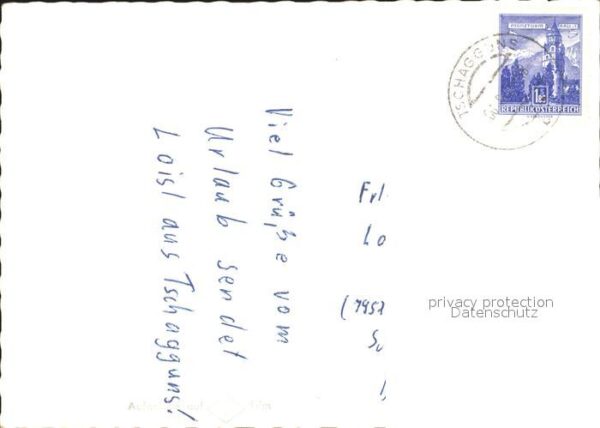 Viel Grüße vom
Urlaub sendet
Loisl aus Tschagguns!
Frl
Lo
(7957
S
privacy protection
Datenschutz
TSCHAGGUNS
REPUBLIK ÖSTERREICH